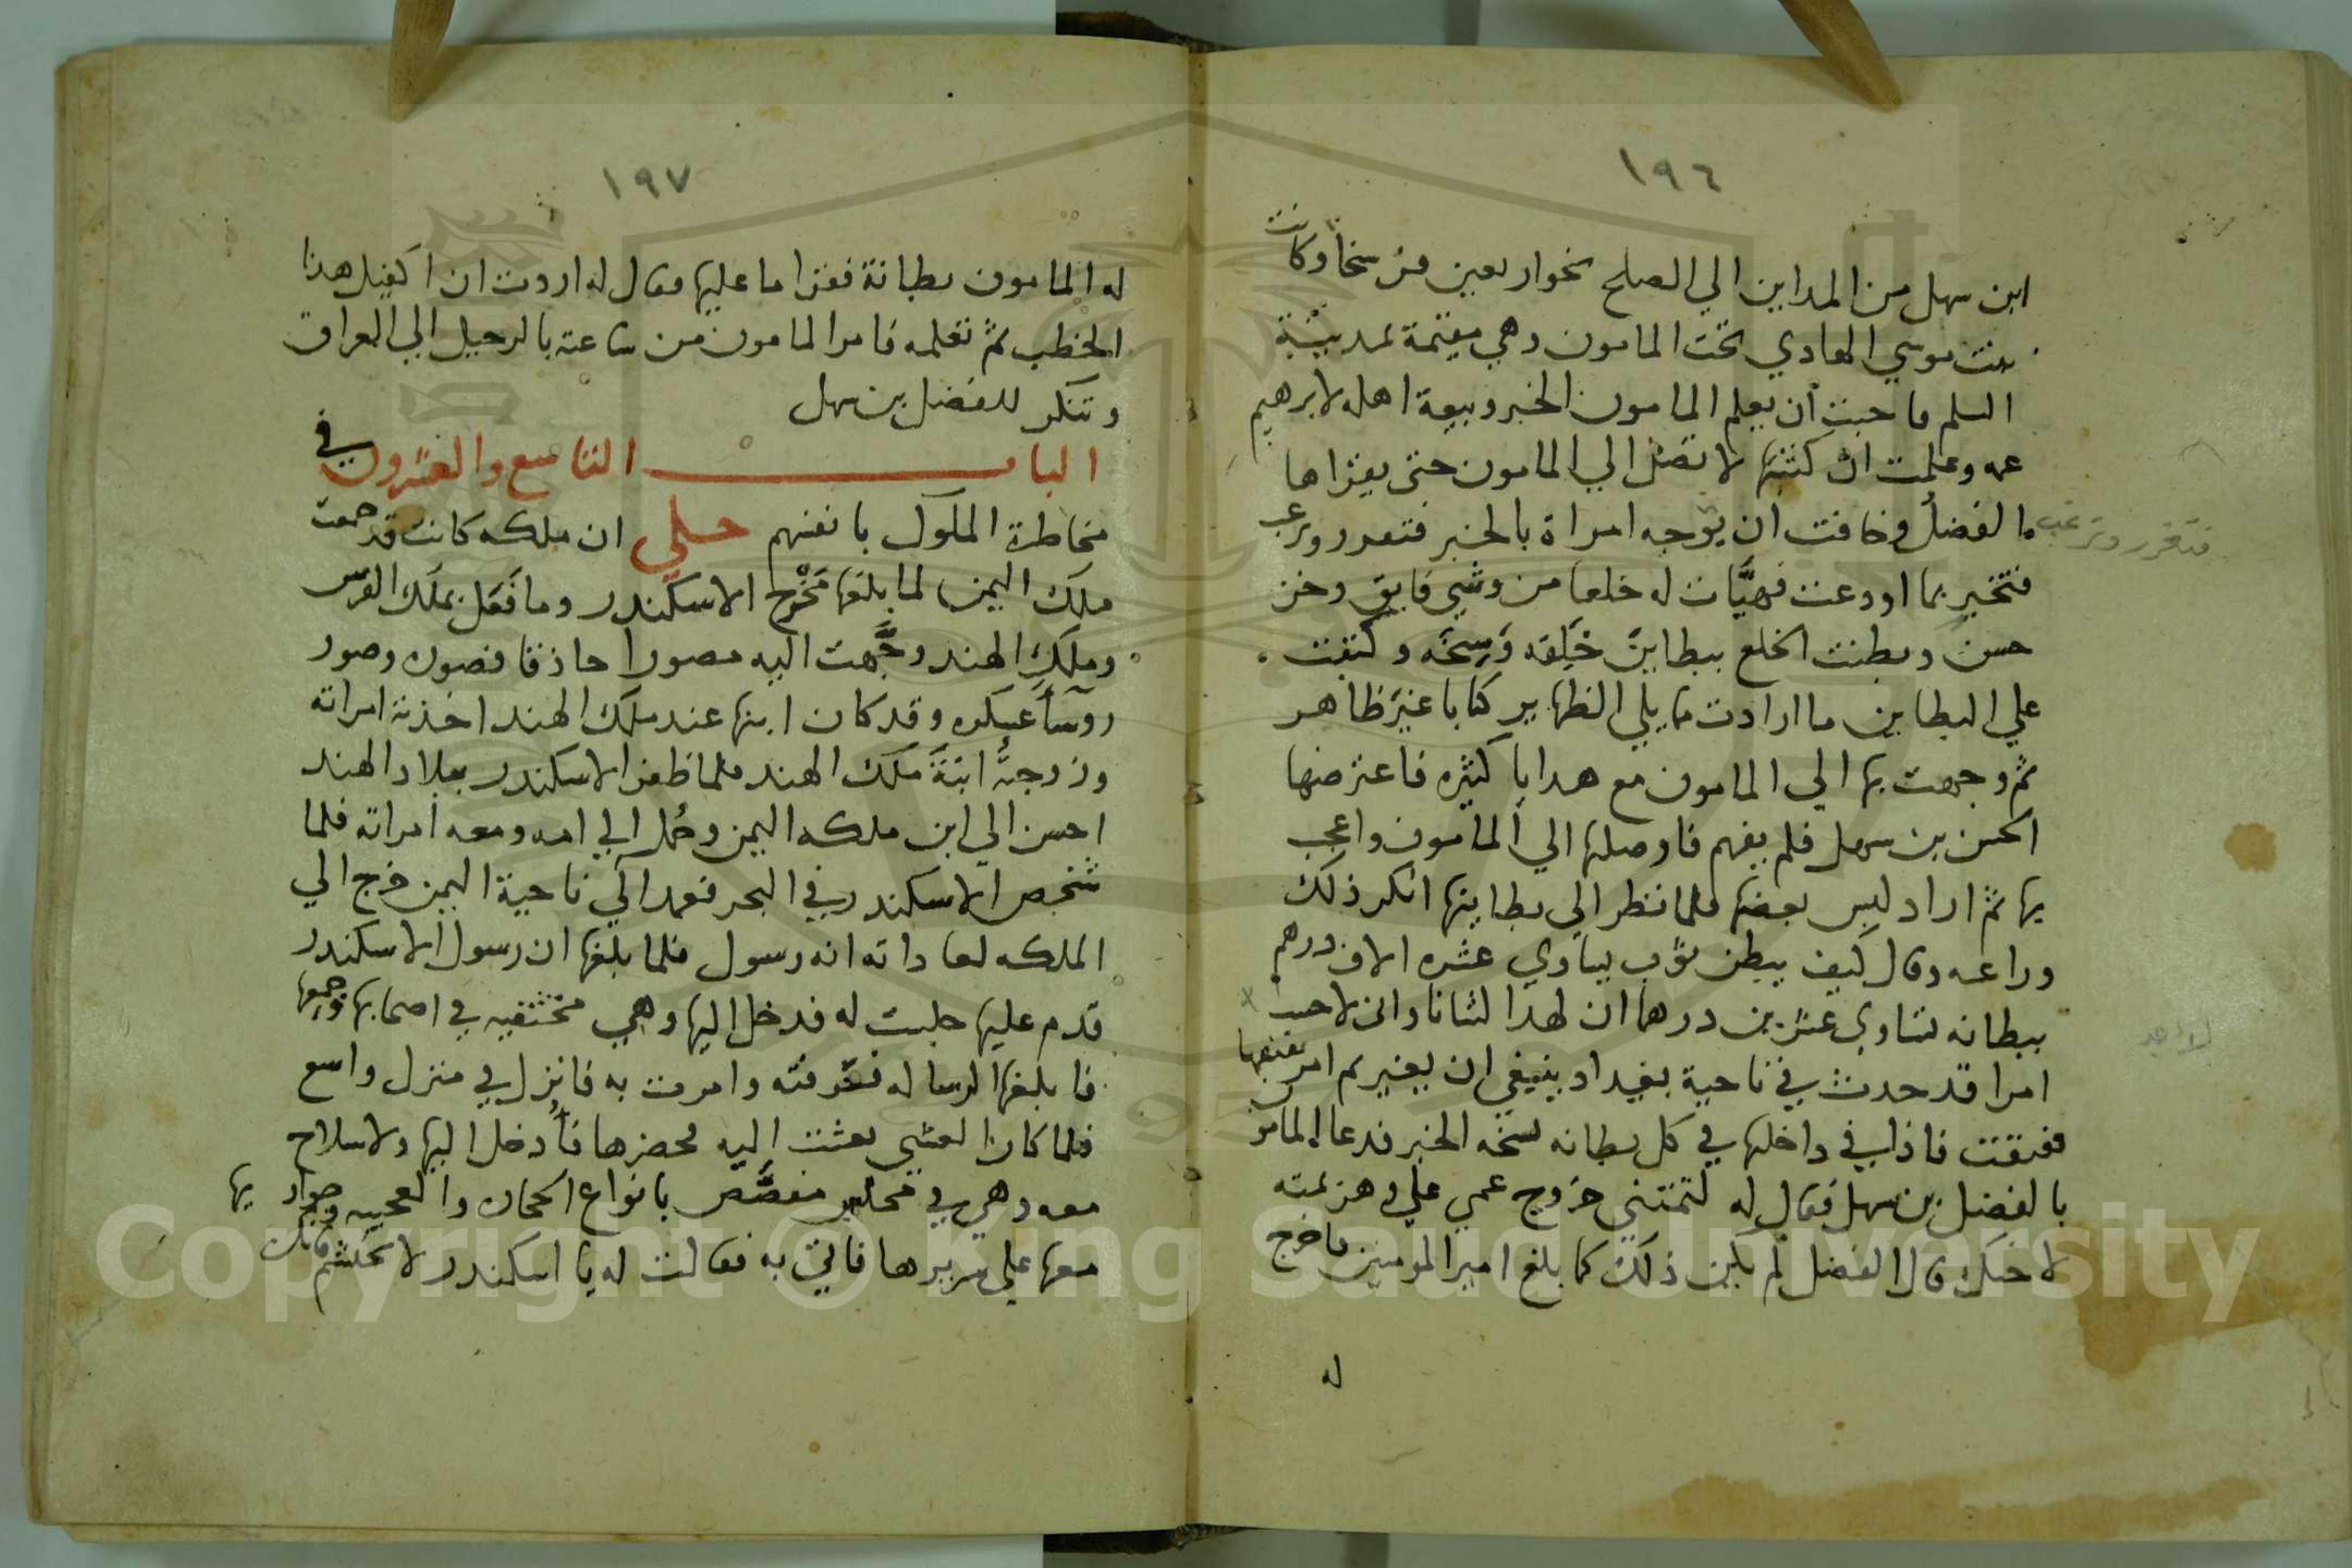 ١٩٦
ابن سهل من المداين الي الصلح نحوار بعين فرسخا وكانت
بنت موسي الهادي تحت المامون وهي مقيمة بمدينة
السلم فاحبت ان يعلم المامون الخبر وبيعة اهله لابرهيم
عمه وعلمت ان كتبها لا تصل الي المامون حتى يقراها
الفضل وخافت ان يوجه امراة بالخبر فتعرر وترعب
فتقرر وترغب
فتخبر بما اودعت فهيَّات له خلعا من وشي فايق وخز
حسن وبطنت الخلع ببطاين خَلِقه وَسِخَه وكتبت
علي البطاين ما ارادت مما يلي الظهاير كتابا غير ظاهر
ثم وجهت بها الي المامون مع هدايا كثيره فاعترضها
الحسن بن سهل فلم يفهم فاوصلها الي المامون واعجب
بها ثم اراد لبس بعضها فلما نظر الي بطاينها انكر ذلك
وراعه وقال كيف يبطن ثوب يساوي عشره الاف درهم
ببطانه تساوي عشرين درهما ان لهذا لشانا واني لاحسب
امرا قد حدث في ناحية بغداد ينبغي ان يغير ثم امر بفتقها
ففتقت فاذا في داخلها في كل بطانه نسخه الخبر فدعا المامون
بالفضل بن سهل فقال له لتمتني خروج عمي علي وهزيمته
لاخيك قال الفضل لم يكن ذلك كما بلغ امير المومنين فاخرج
له
١٩٧
له المامون بطانة فقرا ما عليها فقال له اردت ان اكفيك هذا
الخطب ثم تعلمه فامر المامون من ساعته بالرحيل الي العراق
وتنكر للفضل بن سهل
الباب التاسع والعشرون في
مخاطرة الملوك بانفسهم حكي ان ملكه كانت قد جمعت
ملك اليمن لما بلغها مَخْرج الاسكندر وما فَعَل بملك الفرس
وملك الهند وجَّهت اليه مصورا حاذقا فصوره وصور
روسآ عسكره وقد كان ابنها عند ملك الهند اخذته امراته
وزوجتُه ابنةَ ملك الهند فلما ظفر الاسكندر ببلاد الهند
احسن الي ابن ملكه اليمن وحُمل الي امه ومعه امراته فلما
شخص الاسكندر في البحر فعمد الي ناحية اليمن خرج الي
الملكه لعاداته انه رسول فلما بلغها ان رسول الاسكندر
قدم عليها جلست له فدخل اليها وهي في اصحابها وجمعها
فابلغها الرساله فعَرفته وامرت به فانزل في منزل واسع
فلما كان العشي بعثت اليه يحضرها فأُدخل اليها ولاسلاح
معه وهي في مجلس مفصَّص بانواع الحجاره والعجيبه وجوار بها
معها علي سريرها فاتي به فقالت له يا اسكندر لا تحتشم فانك